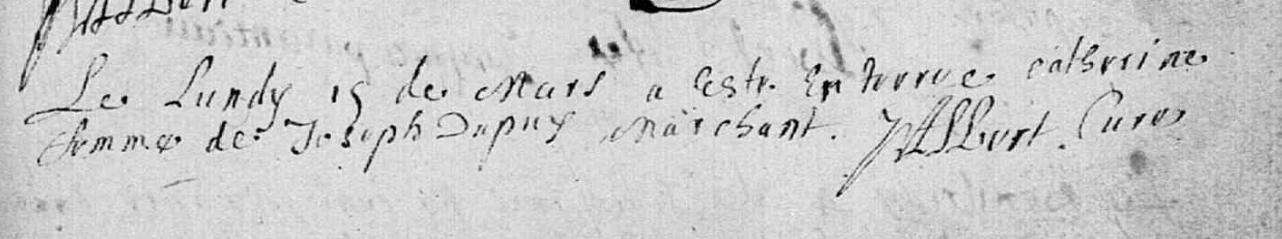 Le Lundy 15 de Mars a este Enterree catherine
femme de Joseph Dupuy Marchant. JAlbert. Cure